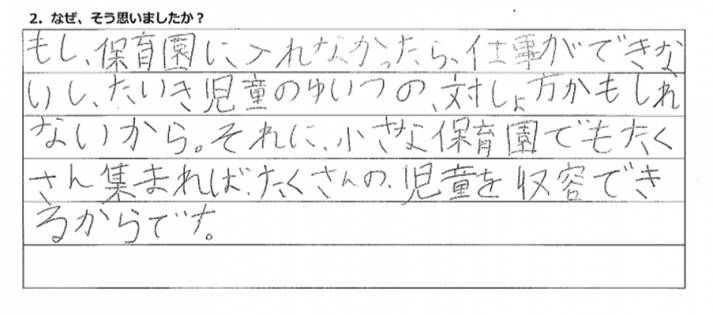 2. なぜ、そう思いましたか？
もし、保育園に、入れなかったら、仕事ができな
いし、たいき児童のゆいつの、対しょ方かもしれ
ないから。それに、小さな保育園でもたく
さん集まれば、たくさんの、児童を収容でき
るからです。